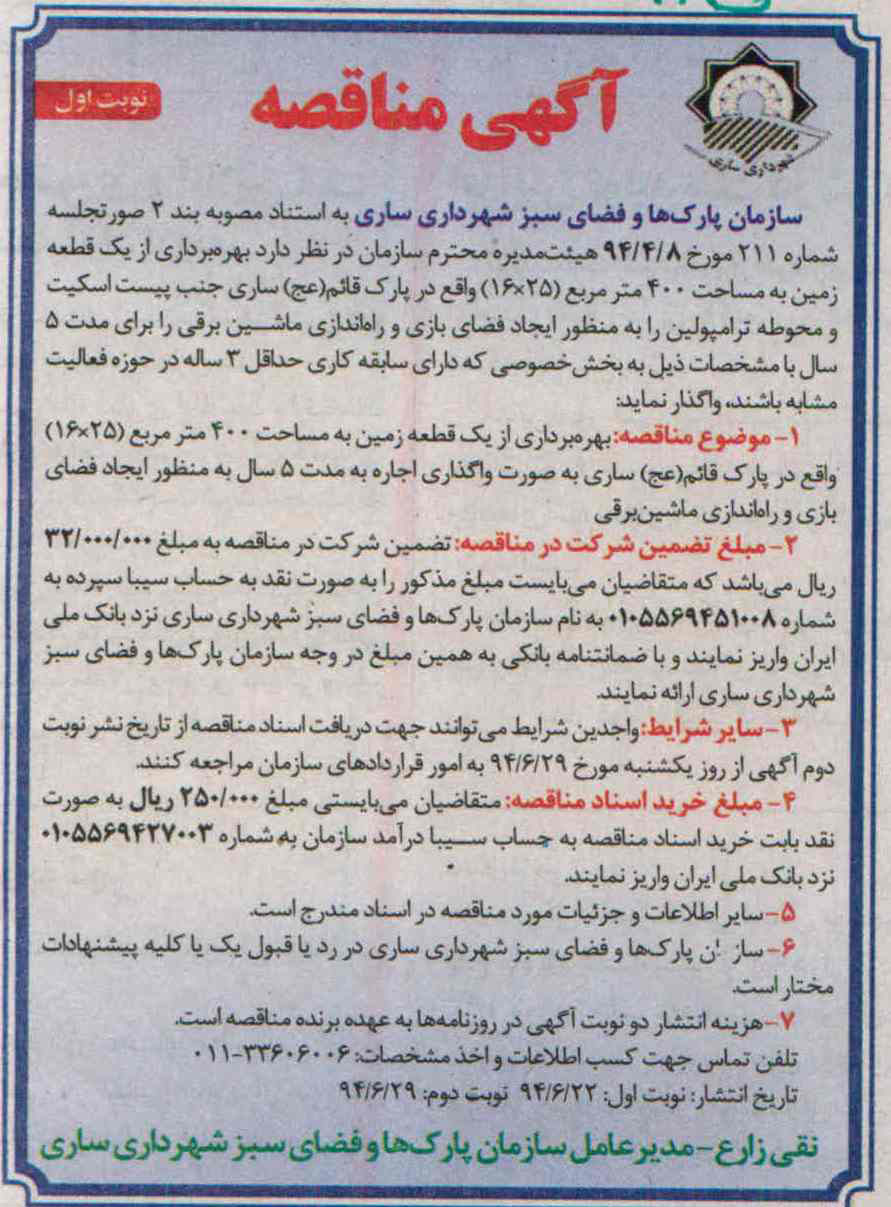 آگهی مناقصه
نوبت اول
شهرداری ساری
سازمان پارک‌ها و فضای سبز شهرداری ساری به استناد مصوبه بند ۲ صورتجلسه
شماره ۲۱۱ مورخ ۹۴/۴/۸ هیئت‌مدیره محترم سازمان در نظر دارد بهره‌برداری از یک قطعه
زمین به مساحت ۴۰۰ متر مربع (۲۵×۱۶) واقع در پارک قائم(عج) ساری جنب پیست اسکیت
و محوطه ترامپولین را به منظور ایجاد فضای بازی و راه‌اندازی ماشین برقی را برای مدت ۵
سال با مشخصات ذیل به بخش‌خصوصی که دارای سابقه کاری حداقل ۳ ساله در حوزه فعالیت
مشابه باشند، واگذار نماید:
۱- موضوع مناقصه: بهره‌برداری از یک قطعه زمین به مساحت ۴۰۰ متر مربع (۲۵×۱۶)
واقع در پارک قائم(عج) ساری به صورت واگذاری اجاره به مدت ۵ سال به منظور ایجاد فضای
بازی و راه‌اندازی ماشین‌برقی
۲- مبلغ تضمین شرکت در مناقصه: تضمین شرکت در مناقصه به مبلغ ۳۲/۰۰۰/۰۰۰
ریال می‌باشد که متقاضیان می‌بایست مبلغ مذکور را به صورت نقد به حساب سیبا سپرده به
شماره ۰۱۰۵۵۶۹۴۵۱۰۰۸ به نام سازمان پارک‌ها و فضای سبز شهرداری ساری نزد بانک ملی
ایران واریز نمایند و با ضمانتنامه بانکی به همین مبلغ در وجه سازمان پارک‌ها و فضای سبز
شهرداری ساری ارائه نمایند.
۳- سایر شرایط: واجدین شرایط می‌توانند جهت دریافت اسناد مناقصه از تاریخ نشر نوبت
دوم آگهی از روز یکشنبه مورخ ۹۴/۶/۲۹ به امور قراردادهای سازمان مراجعه کنند.
۴- مبلغ خرید اسناد مناقصه: متقاضیان می‌بایستی مبلغ ۲۵۰/۰۰۰ ریال به صورت
نقد بابت خرید اسناد مناقصه به حساب سیبا درآمد سازمان به شماره ۰۱۰۵۵۶۹۴۲۷۰۰۳
نزد بانک ملی ایران واریز نمایند.
۵- سایر اطلاعات و جزئیات مورد مناقصه در اسناد مندرج است.
۶- سازمان پارک‌ها و فضای سبز شهرداری ساری در رد یا قبول یک یا کلیه پیشنهادات
مختار است.
۷- هزینه انتشار دو نوبت آگهی در روزنامه‌ها به عهده برنده مناقصه است.
تلفن تماس جهت کسب اطلاعات و اخذ مشخصات: ۳۳۶۰۶۰۰۶-۰۱۱
تاریخ انتشار: نوبت اول: ۹۴/۶/۲۲ نوبت دوم: ۹۴/۶/۲۹
نقی زارع - مدیرعامل سازمان پارک‌ها و فضای سبز شهرداری ساری